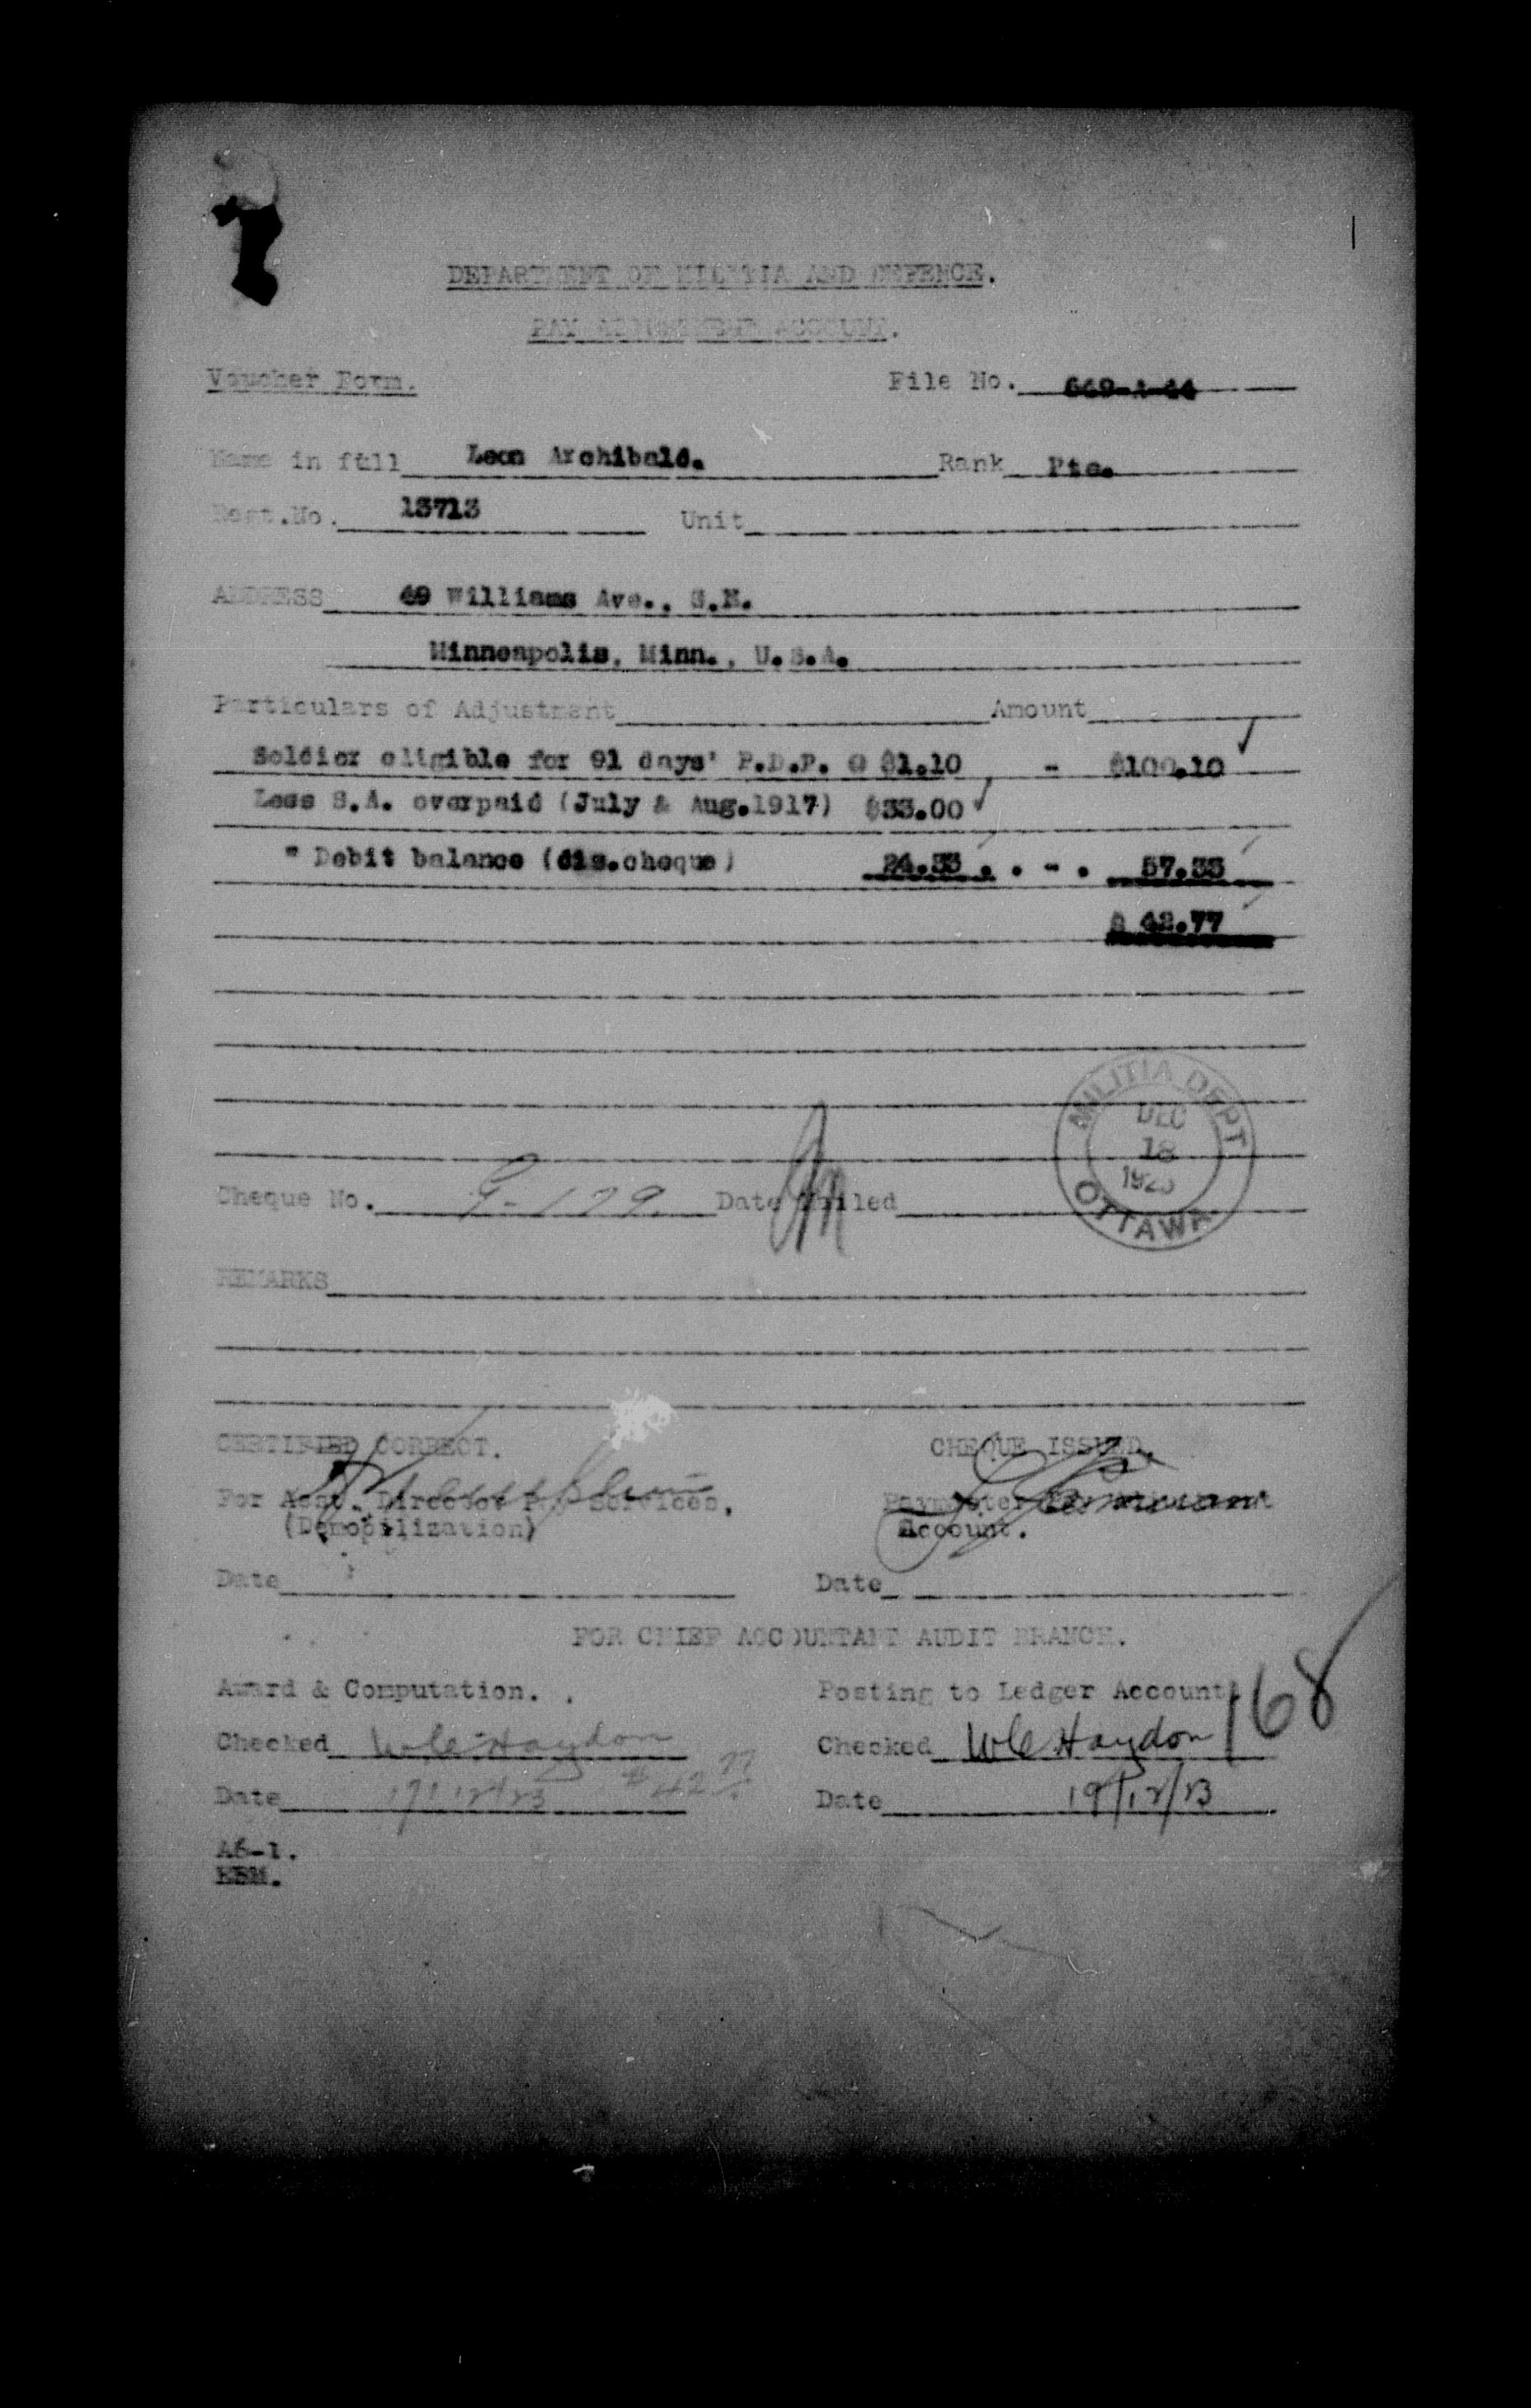 DEPARTMENT OF MILITIA AND DEFENCE.
PAY ADJUSTMENT ACCOUNT.
Voucher Form. File No. 649-A-44
Name in full Leon Archibald. Rank Pte.
Regt.No. 13713 Unit
ADDRESS 49 Williams Ave., S.E.
Minneapolis, Minn., U.S.A.
Particulars of Adjustment Amount
Soldier eligible for 91 days' P.D.P. @ $1.10 - $100.10
Less S.A. overpaid (July & Aug.1917) $33.00
" Debit balance (dis.cheque) 24.33 . . - . 57.33
$ 42.77
MILITIA DEPT.
DEC
18
1923
OTTAWA
Cheque No. G-129. Date Mailed
REMARKS
CERTIFIED CORRECT. CHEQUE ISSUED.
For Asst. Director Pay Services. Paymaster
(Demobilization) Account.
Date Date
FOR CHIEF ACCOUNTANT AUDIT BRANCH.
Award & Computation. Posting to Ledger Account 168
Checked W C Haydon Checked W C Haydon
Date 19/12/23 $42.77 Date 19/12/23
A6-1.